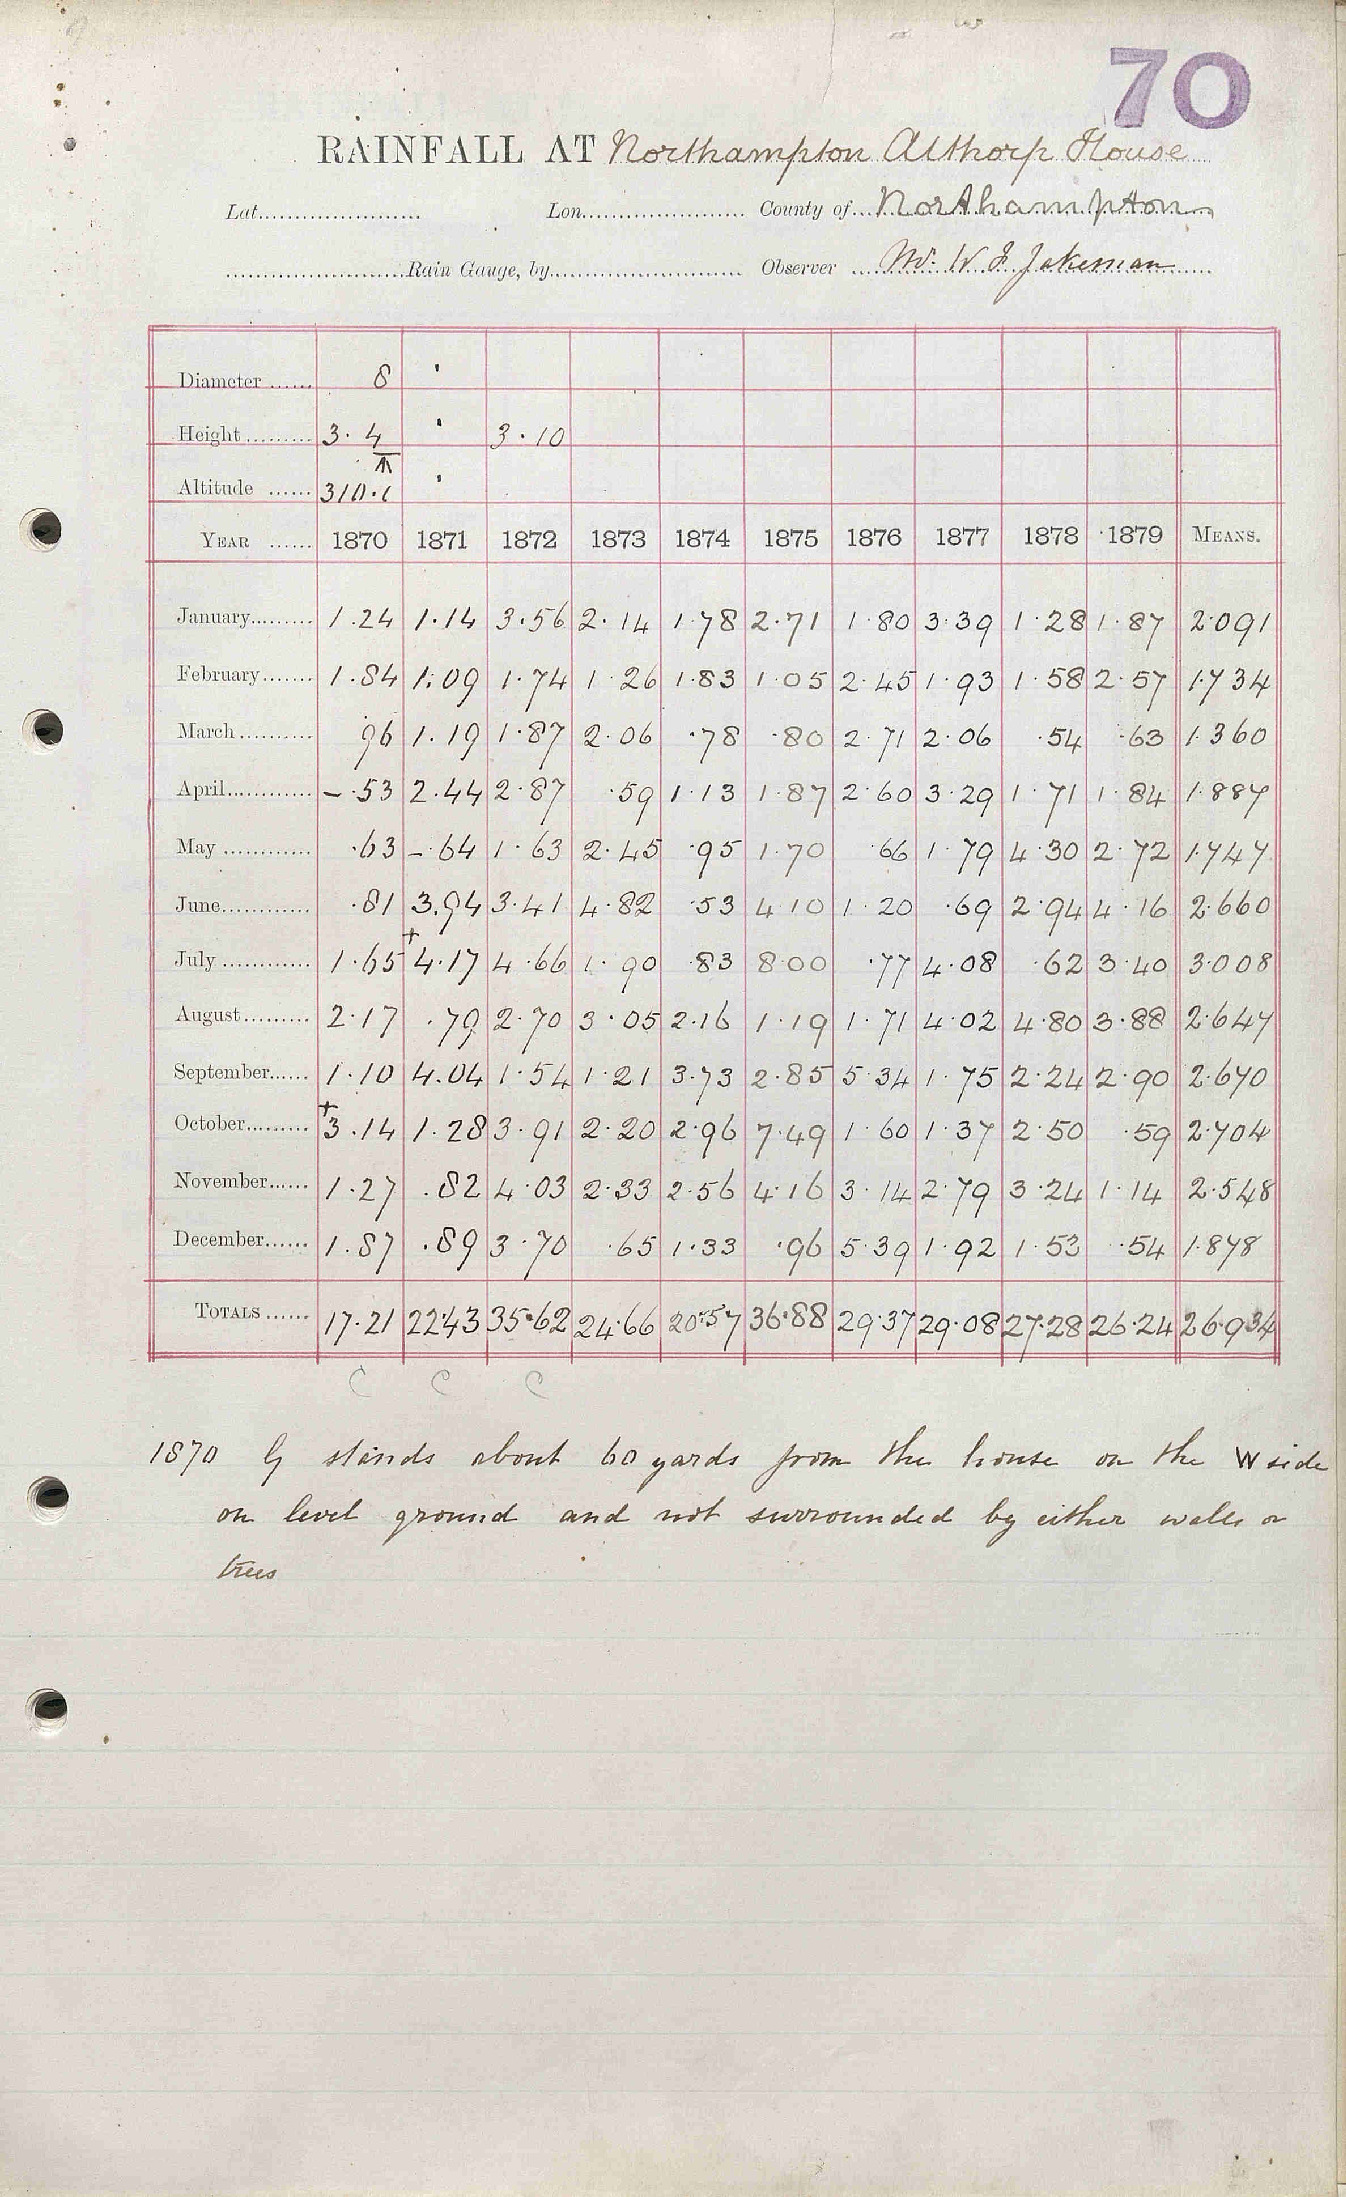 70
RAINFALL AT Northampton Althorp House
Lat........ Lon........ County of Northampton
........Rain Gauge, by........ Observer Mr. W J Jakeman
Diameter ...... 8 '
Height ......... 3.4 ' 3.10
Altitude ...... 310.
YEAR ...... 1870 1871 1872 1873 1874 1875 1876 1877 1878 1879 MEANS.
January......... 1.24 1.14 3.56 2.14 1.78 2.71 1.80 3.39 1.28 1.87 2.091
February....... 1.84 1.09 1.74 1.26 1.83 1.05 2.45 1.93 1.58 2.57 1.734
March.......... 96 1.19 1.87 2.06 .78 .80 2.71 2.06 .54 .63 1.360
April............ -.53 2.44 2.87 .59 1.13 1.87 2.60 3.29 1.71 1.84 1.887
May ............ .63 -.64 1.63 2.45 .95 1.70 .66 1.79 4.30 2.72 1.747
June............ .81 3.94 3.41 4.82 .53 4.10 1.20 .69 2.94 4.16 2.660
July ............ 1.65 +4.17 4.66 1.90 .83 8.00 .77 4.08 .62 3.40 3.008
August......... 2.17 .79 2.70 3.05 2.16 1.19 1.71 4.02 4.80 3.88 2.647
September...... 1.10 4.04 1.54 1.21 3.73 2.85 5.34 1.75 2.24 2.90 2.670
October......... +3.14 1.28 3.91 2.20 2.96 7.49 1.60 1.37 2.50 .59 2.704
November...... 1.27 .82 4.03 2.33 2.56 4.16 3.14 2.79 3.24 1.14 2.548
December...... 1.87 .89 3.70 .65 1.33 .96 5.39 1.92 1.53 .54 1.878
TOTALS ...... 17.21 22.43 35.62 24.66 20.57 36.88 29.37 29.08 27.28 26.24 26.934
C C C
1870 G stands about 60 yards from the house on the W side
on level ground and not surrounded by either walls or
trees